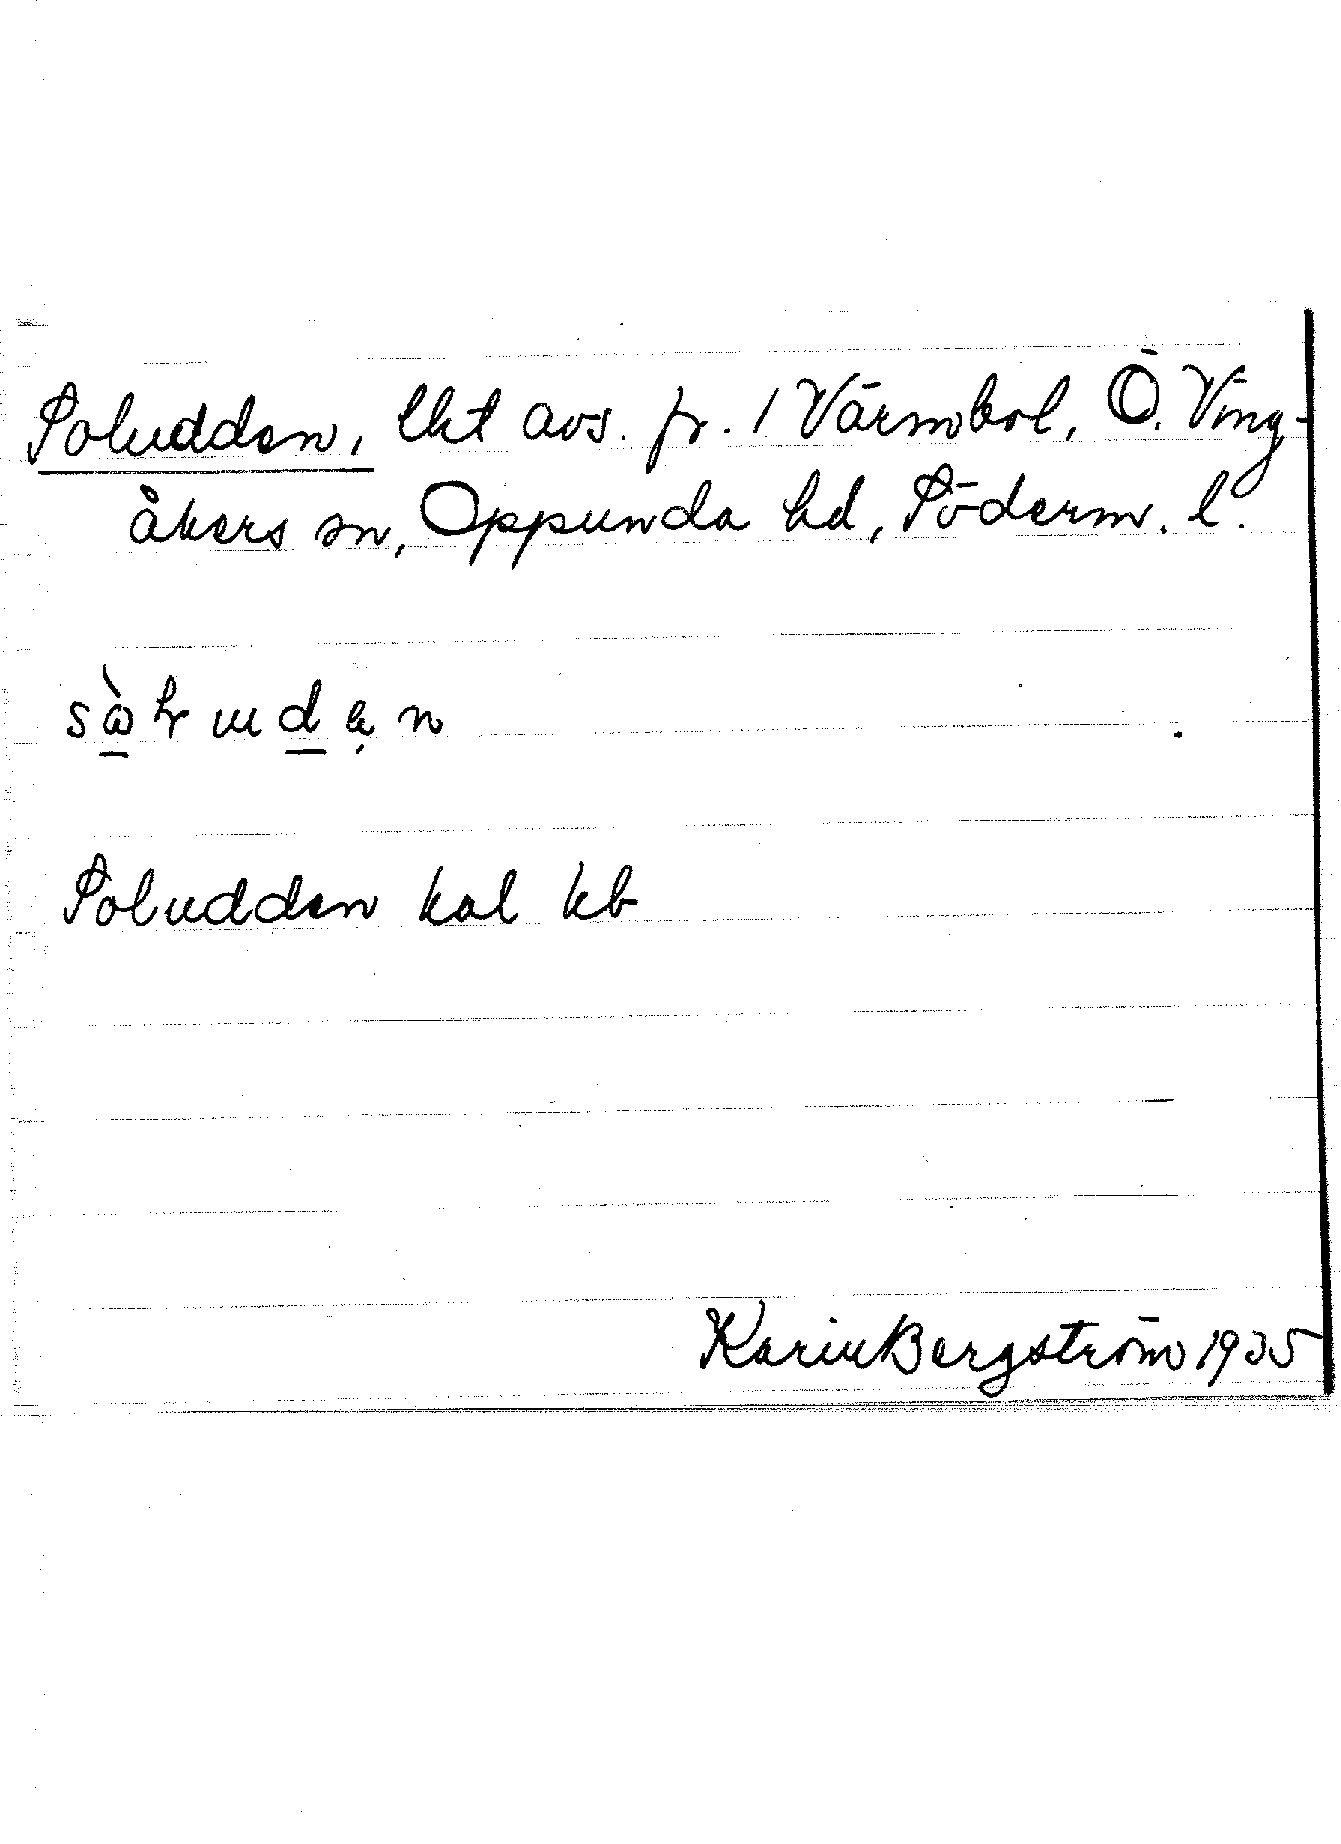 Soludden, lht avs. fr. 1 Värmbol, Ö. Ving-
åkers sn, Oppunda hd, Söderm. l.
Soludden kal kb
Karin Bergström 1935